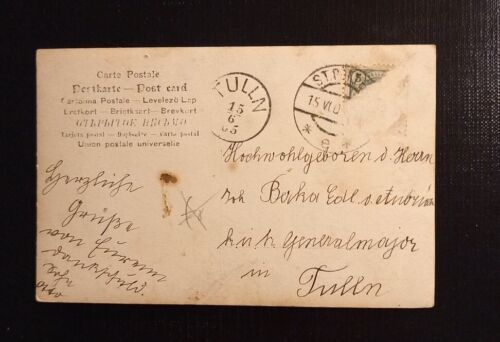 Carte Postale
Postkarte — Post card
Cartolina Postale — Levelező Lap
Brefkort — Briefkaart — Brevkort
ОТКРЫТОЕ ПИСЬМО
Tarjeta postal — Dopisnice — Karta postal
Union postale universelle
TULLN
15
6
05
ST.P
15 VI 0
5
Herzliche
Grüße
von Eurem
dankschuld.
sehr
Otto
Hochwohlgeboren d. Herrn
Joh Baka Edl. v.
k. u. k. Generalmajor
in
Tulln